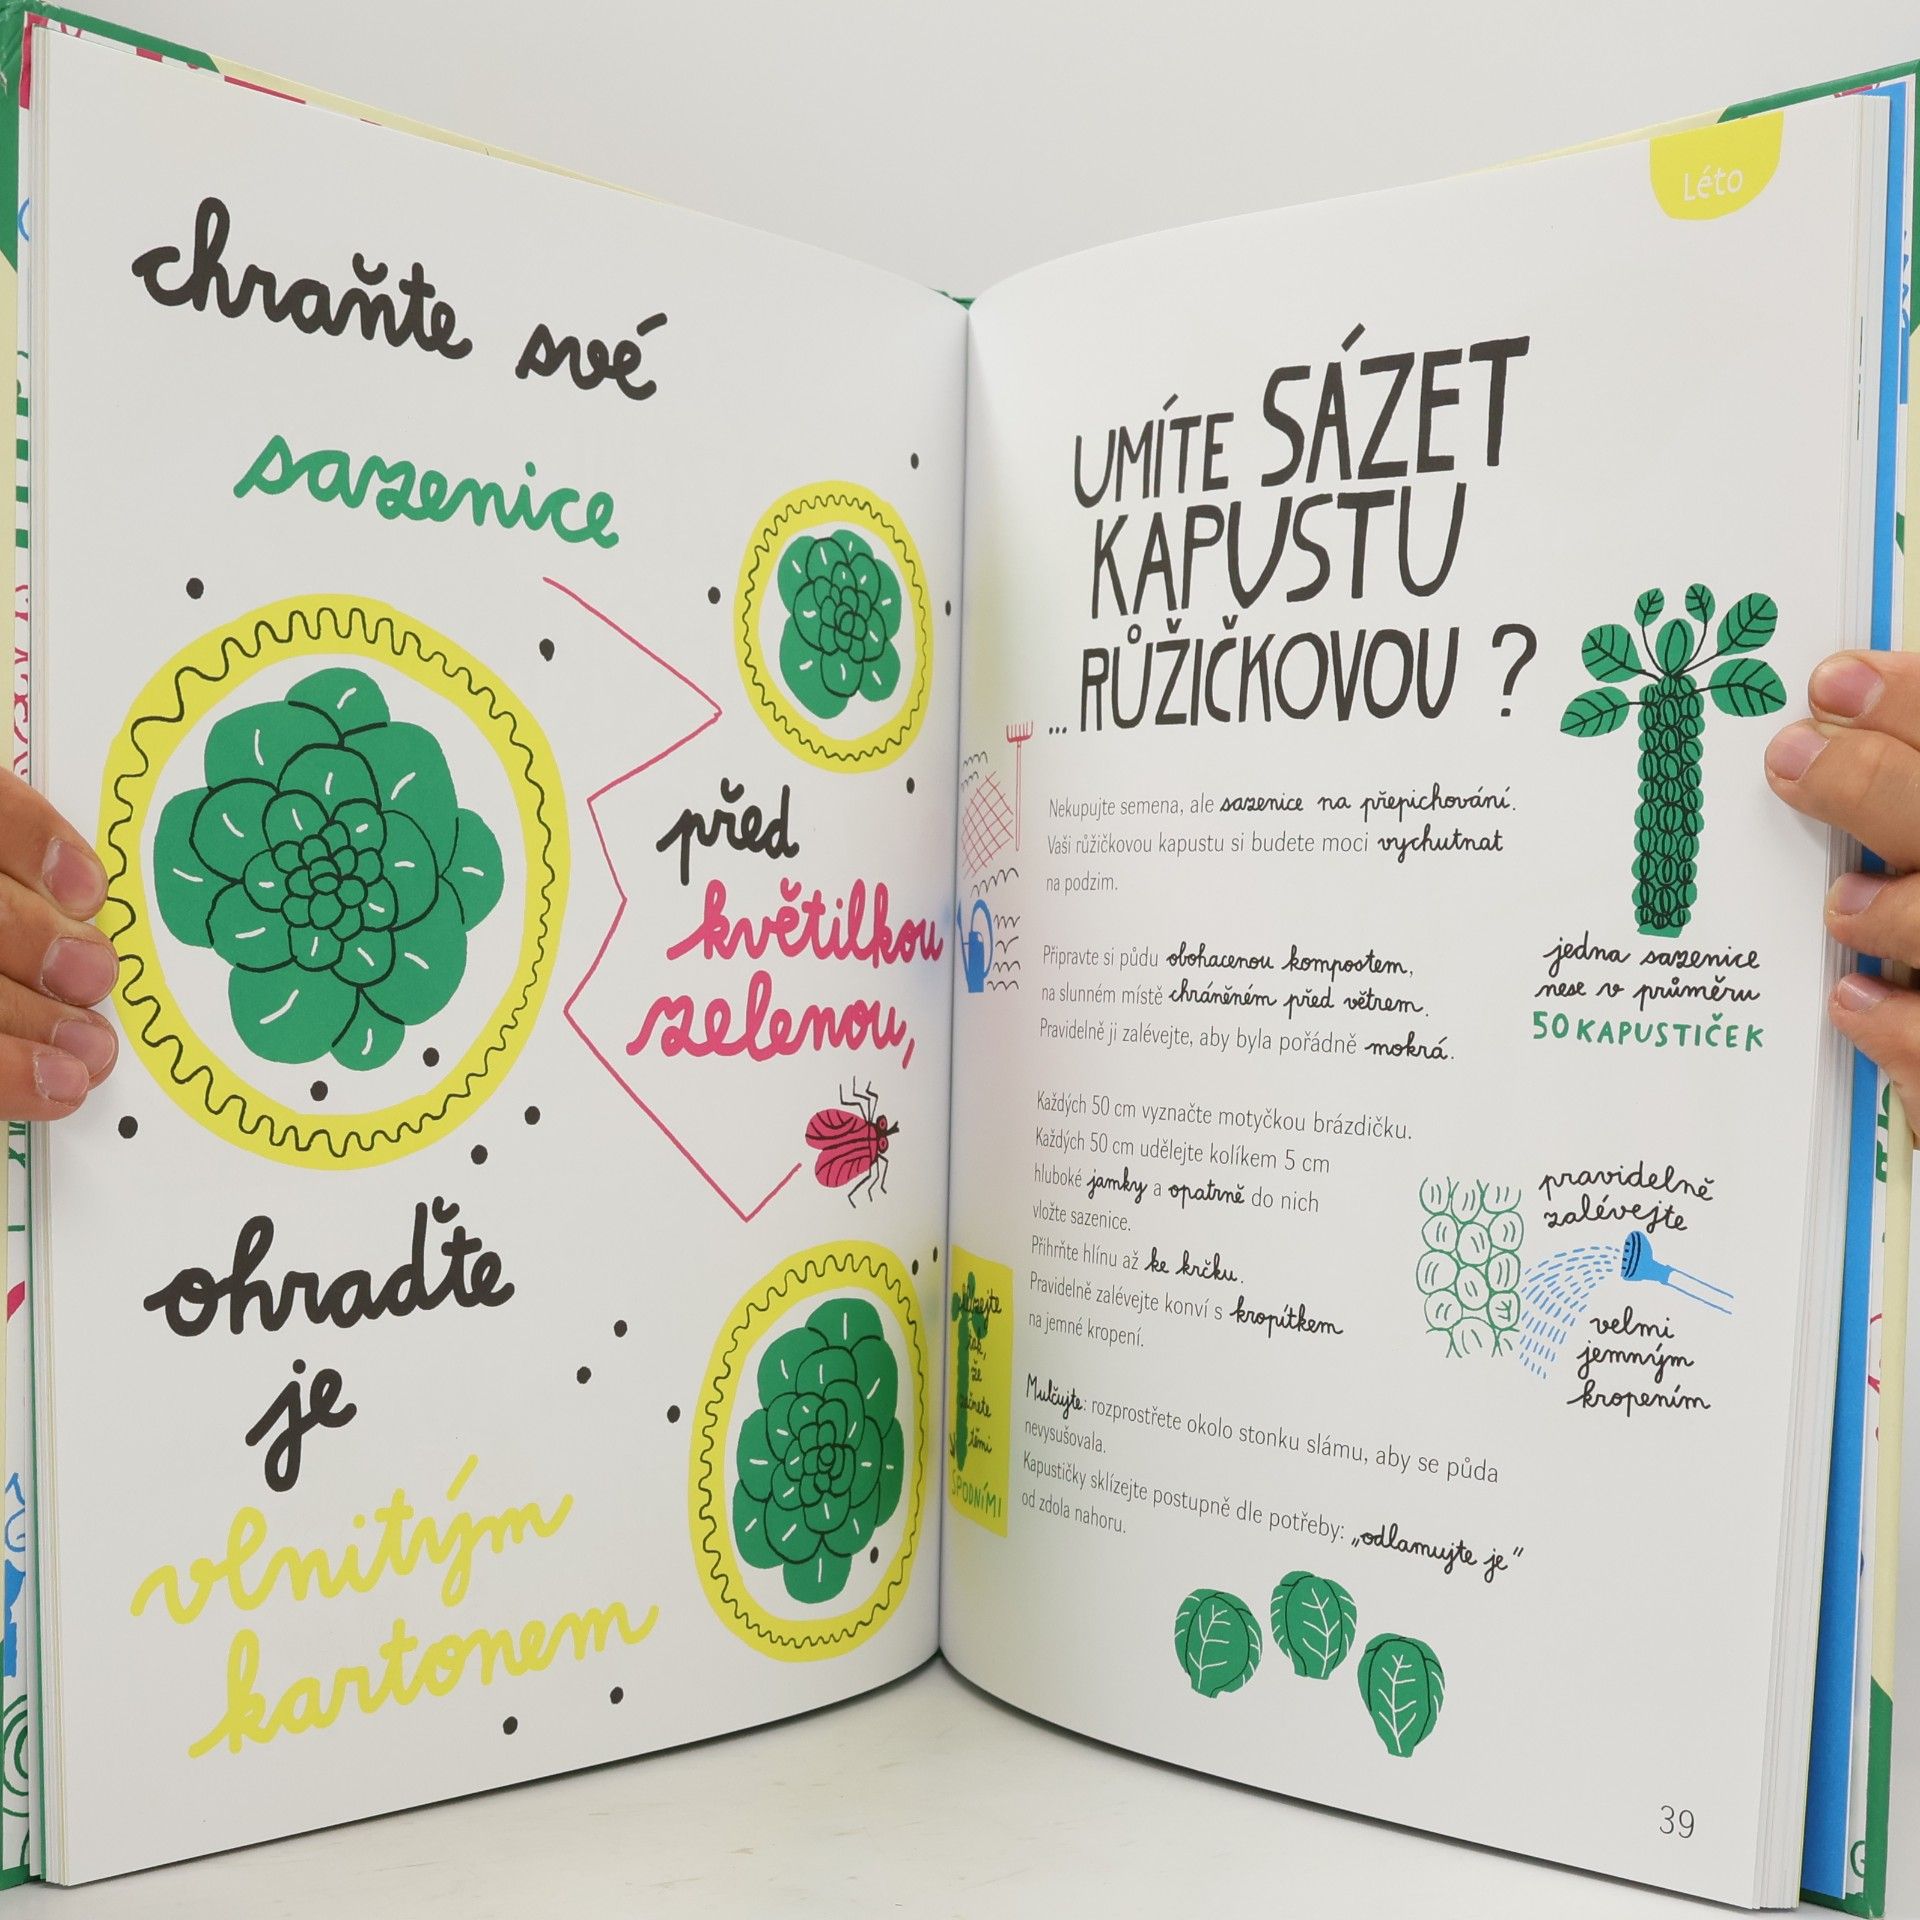 chraňte své
sazenice
před
květilkou
zelenou,
ohraďte
je
vlnitým
kartonem
Léto
UMÍTE SÁZET
KAPUSTU
... RŮŽIČKOVOU ?
Nekupujte semena, ale sazenice na přepichování.
Vaši růžičkovou kapustu si budete moci vychutnat
na podzim.
jedna sazenice
nese v průměru
50 KAPUSTIČEK
Připravte si půdu obohacenou kompostem,
na slunném místě chráněném před větrem.
Pravidelně ji zalévejte, aby byla pořádně mokrá.
Každých 50 cm vyznačte motyčkou brázdičku.
Každých 50 cm udělejte kolíkem 5 cm
hluboké jamky a opatrně do nich
vložte sazenice.
Přihrňte hlínu až ke krčku.
Pravidelně zalévejte konví s kropítkem
na jemné kropení.
pravidelně
zalévejte
velmi
jemným
kropením
tak,
že
začnete
těmi
SPODNÍMI
Mulčujte: rozprostřete okolo stonku slámu, aby se půda
nevysušovala.
Kapustičky sklízejte postupně dle potřeby: „odlamujte je“
od zdola nahoru.
39